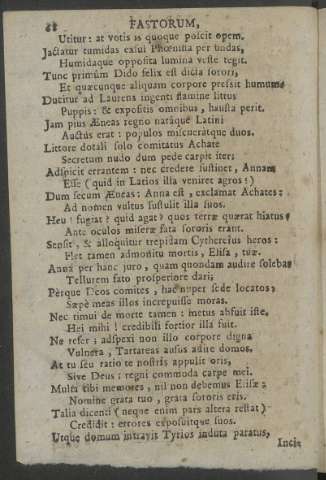 68 FASTORUM,
Utitur: at votis is quoque poscit opem.
Jactatur tumidas exsul Phœnissa per undas,
Humidaque opposita lumina veste tegit.
Tunc primùm Dido felix est dicta sorori,
Et quæcunque aliquam corpore pressit humum.
Ducitur ad Laurens ingenti flamine littus
Puppis: & expositis omnibus, hausta perit.
Jam pius Æneas regno natâque Latini
Auctus erat: populos miscueràtque duos.
Littore dotali solo comitatus Achate
Secretum nudo dum pede carpit iter;
Adspicit errantem: nec credere sustinet, Annam
Esse (quid in Latios illa veniret agros?)
Dum secum Æneas: Anna est, exclamat Achates:
Ad nomen vultus sustulit illa suos.
Heu! fugiat? quid agat? quos terræ quærat hiatus?
Ante oculos miseræ fata sororis erant.
Sensit, & alloquitur trepidam Cythereïus heros:
Flet tamen admonitu mortis, Elisa, tuæ.
Anna per hanc juro, quam quondam audire solebas
Tellurem fato prosperiore dari;
Pèrque Deos comites, hac nuper sede locatos;
Sæpè meas illos increpuisse moras.
Nec timui de morte tamen: metus abfuit iste.
Hei mihi! credibili fortior illa fuit.
Ne refer; adspexi non illo corpore digna
Vulnera, Tartareas ausus adire domos.
At tu seu ratio te nostris appulit oris,
Sive Deus: regni commoda carpe mei.
Multa tibi memores, nil non debemus Elisæ:
Nomine grata tuo, grata sororis eris.
Talia dicenti (neque enim pars altera restat)
Credidit: errores exposuitque suos.
Utque domum intravit Tyrios induta paratus,
Incis